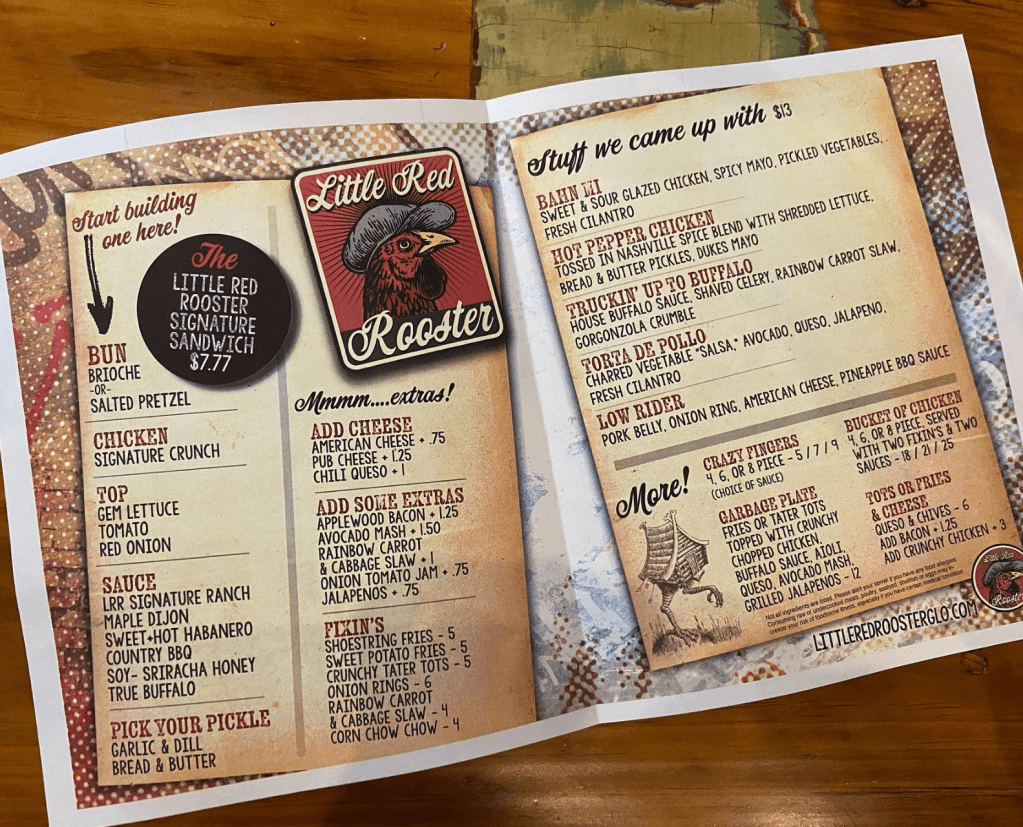 Start building
one here!
The
LITTLE RED
ROOSTER
SIGNATURE
SANDWICH
$7.77
Little Red
Rooster
BUN
BRIOCHE
-OR-
SALTED PRETZEL
CHICKEN
SIGNATURE CRUNCH
TOP
GEM LETTUCE
TOMATO
RED ONION
SAUCE
LRR SIGNATURE RANCH
MAPLE DIJON
SWEET+HOT HABANERO
COUNTRY BBQ
SOY- SRIRACHA HONEY
TRUE BUFFALO
PICK YOUR PICKLE
GARLIC & DILL
BREAD & BUTTER
Mmmm....extras!
ADD CHEESE
AMERICAN CHEESE + .75
PUB CHEESE + 1.25
CHILI QUESO + 1
ADD SOME EXTRAS
APPLEWOOD BACON + 1.25
AVOCADO MASH + 1.50
RAINBOW CARROT
& CABBAGE SLAW + 1
ONION TOMATO JAM + .75
JALAPENOS + .75
FIXIN'S
SHOESTRING FRIES - 5
SWEET POTATO FRIES - 5
CRUNCHY TATER TOTS - 5
ONION RINGS - 6
RAINBOW CARROT
& CABBAGE SLAW - 4
CORN CHOW CHOW - 4
Stuff we came up with $13
BAHN MI
SWEET & SOUR GLAZED CHICKEN, SPICY MAYO, PICKLED VEGETABLES,
FRESH CILANTRO
HOT PEPPER CHICKEN
TOSSED IN NASHVILLE SPICE BLEND WITH SHREDDED LETTUCE,
BREAD & BUTTER PICKLES, DUKES MAYO
TRUCKIN' UP TO BUFFALO
HOUSE BUFFALO SAUCE, SHAVED CELERY, RAINBOW CARROT SLAW,
GORGONZOLA CRUMBLE
TORTA DE POLLO
CHARRED VEGETABLE "SALSA," AVOCADO, QUESO, JALAPENO,
FRESH CILANTRO
LOW RIDER
PORK BELLY, ONION RING, AMERICAN CHEESE, PINEAPPLE BBQ SAUCE
More!
CRAZY FINGERS
4, 6, OR 8 PIECE - 5 / 7 / 9
(CHOICE OF SAUCE)
GARBAGE PLATE
FRIES OR TATER TOTS
TOPPED WITH CRUNCHY
CHOPPED CHICKEN
BUFFALO SAUCE, AIOLI,
QUESO, AVOCADO MASH,
GRILLED JALAPENOS - 12
BUCKET OF CHICKEN
4, 6, OR 8 PIECE, SERVED
WITH TWO FIXIN'S & TWO
SAUCES - 18 / 21 / 25
TOTS OR FRIES
& CHEESE
QUESO & CHIVES - 6
ADD BACON + 1.25
ADD CRUNCHY CHICKEN + 3
Not all ingredients are listed. Please alert your server if you have any food allergies.
Consuming raw or undercooked meats, poultry, seafood, shellfish or eggs may in-
crease your risk of foodborne illness, especially if you have certain medical condition
LITTLEREDROOSTERGLO.COM
Little Red
Rooster